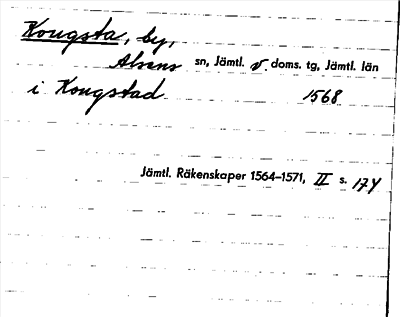 Kougsta, by,
Alsens sn, Jämtl. v. doms. tg, Jämtl. län
i Kougstad 1568
Jämtl. Räkenskaper 1564–1571, II s. 174